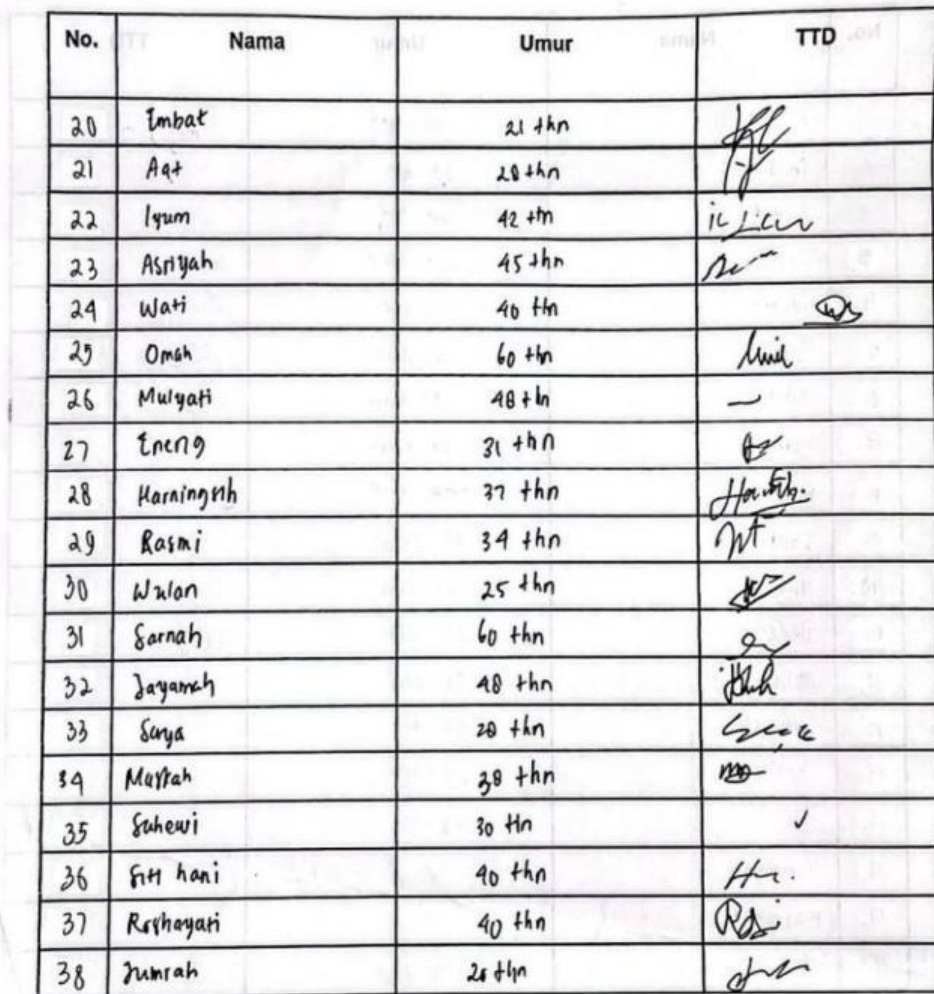 No. Nama Umur TTD
20 Embat 21 thn
21 Aat 28 thn
22 Iyum 42 thn
23 Asriyah 45 thn
24 Wati 40 thn
25 Omah 60 thn
26 Mulyati 48 thn
27 Eneng 31 thn
28 Harningsih 37 thn
29 Rasmi 34 thn
30 Wulan 25 thn
31 Sarnah 60 thn
32 Jayamah 48 thn
33 Surya 28 thn
34 38 thn
35 Suhewi 30 thn
36 Siti hani 40 thn
37 Roshayati 40 thn
38 Jumrah 28 thn